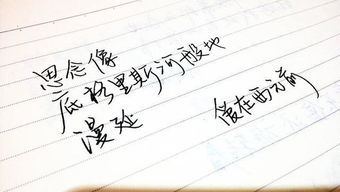 思念像
底格里斯河般地
漫延
傻在西元前